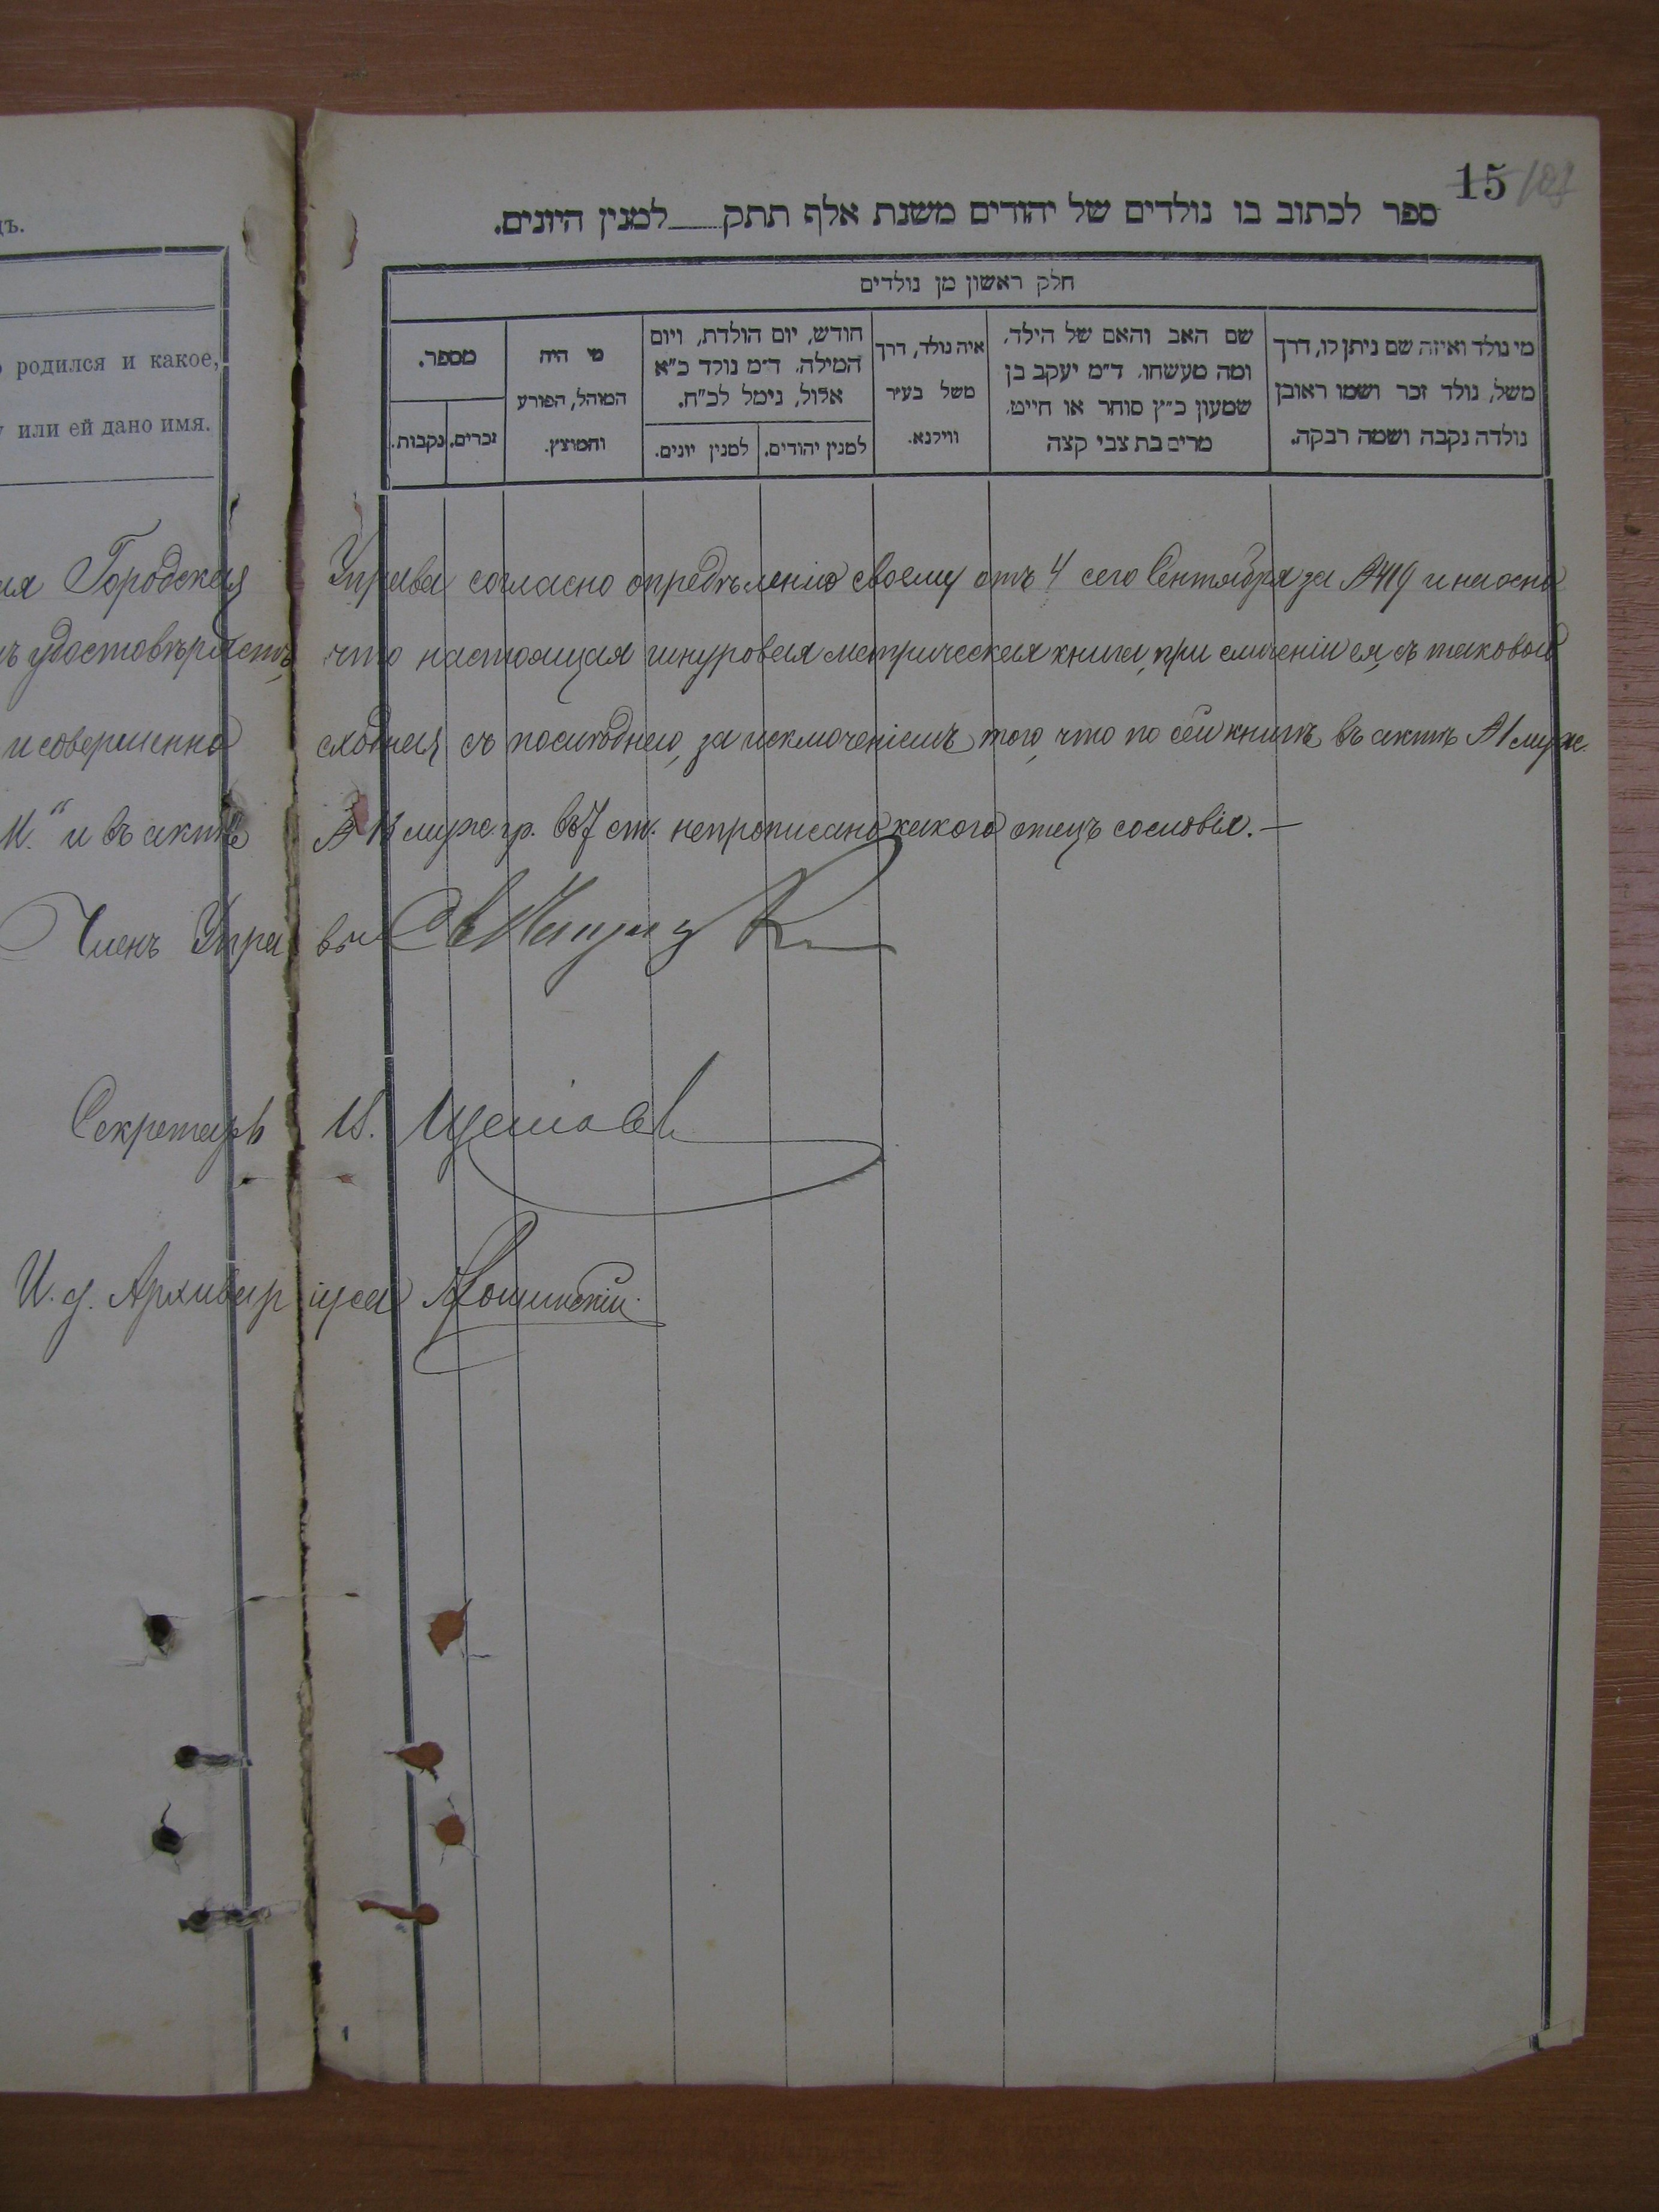 15
ספר לכתוב בו נולדים של יהודים משנת אלף תתק___למנין היונים.
חלק ראשון מן נולדים
מי נולד ואיזה שם ניתן לו, דרך
משל, נולד זכר ושמו ראובן
נולדה נקבה ושמה רבקה.
שם האב והאם של הילד,
ומה מעשהו. ד״מ יעקב בן
שמעון כ״ץ סוחר או חייט.
מרים בת צבי קצה
איה נולד, דרך
משל בעיר
ווילנא.
חודש, יום הולדת, ויום
המילה. ד״מ נולד כ״א
אלול, נימל לכ״ח.
למנין יהודים.
למנין יונים.
מי היה
המוהל, הפורע
והמוצץ.
מספר.
זכרים.
נקבות.
дъ.
родился и какое,
или ей дано имя.
Городская Управа согласно опредѣленію своему отъ 4 сего Сентября за №419 и на осно
удостовѣряетъ, что настоящая шнуровая метрическая книга, при сличеніи ея, съ таковой
и совершенно сходная съ послѣднею, за исключеніемъ того, что по сей книгѣ въ актѣ №1 муже.
М." и въ актѣ № 13 муже. гр. въ 7 ст. непрописано какого отецъ сословія. —
Членъ Управы
Секретарь И.
И. д. Архиваріуса